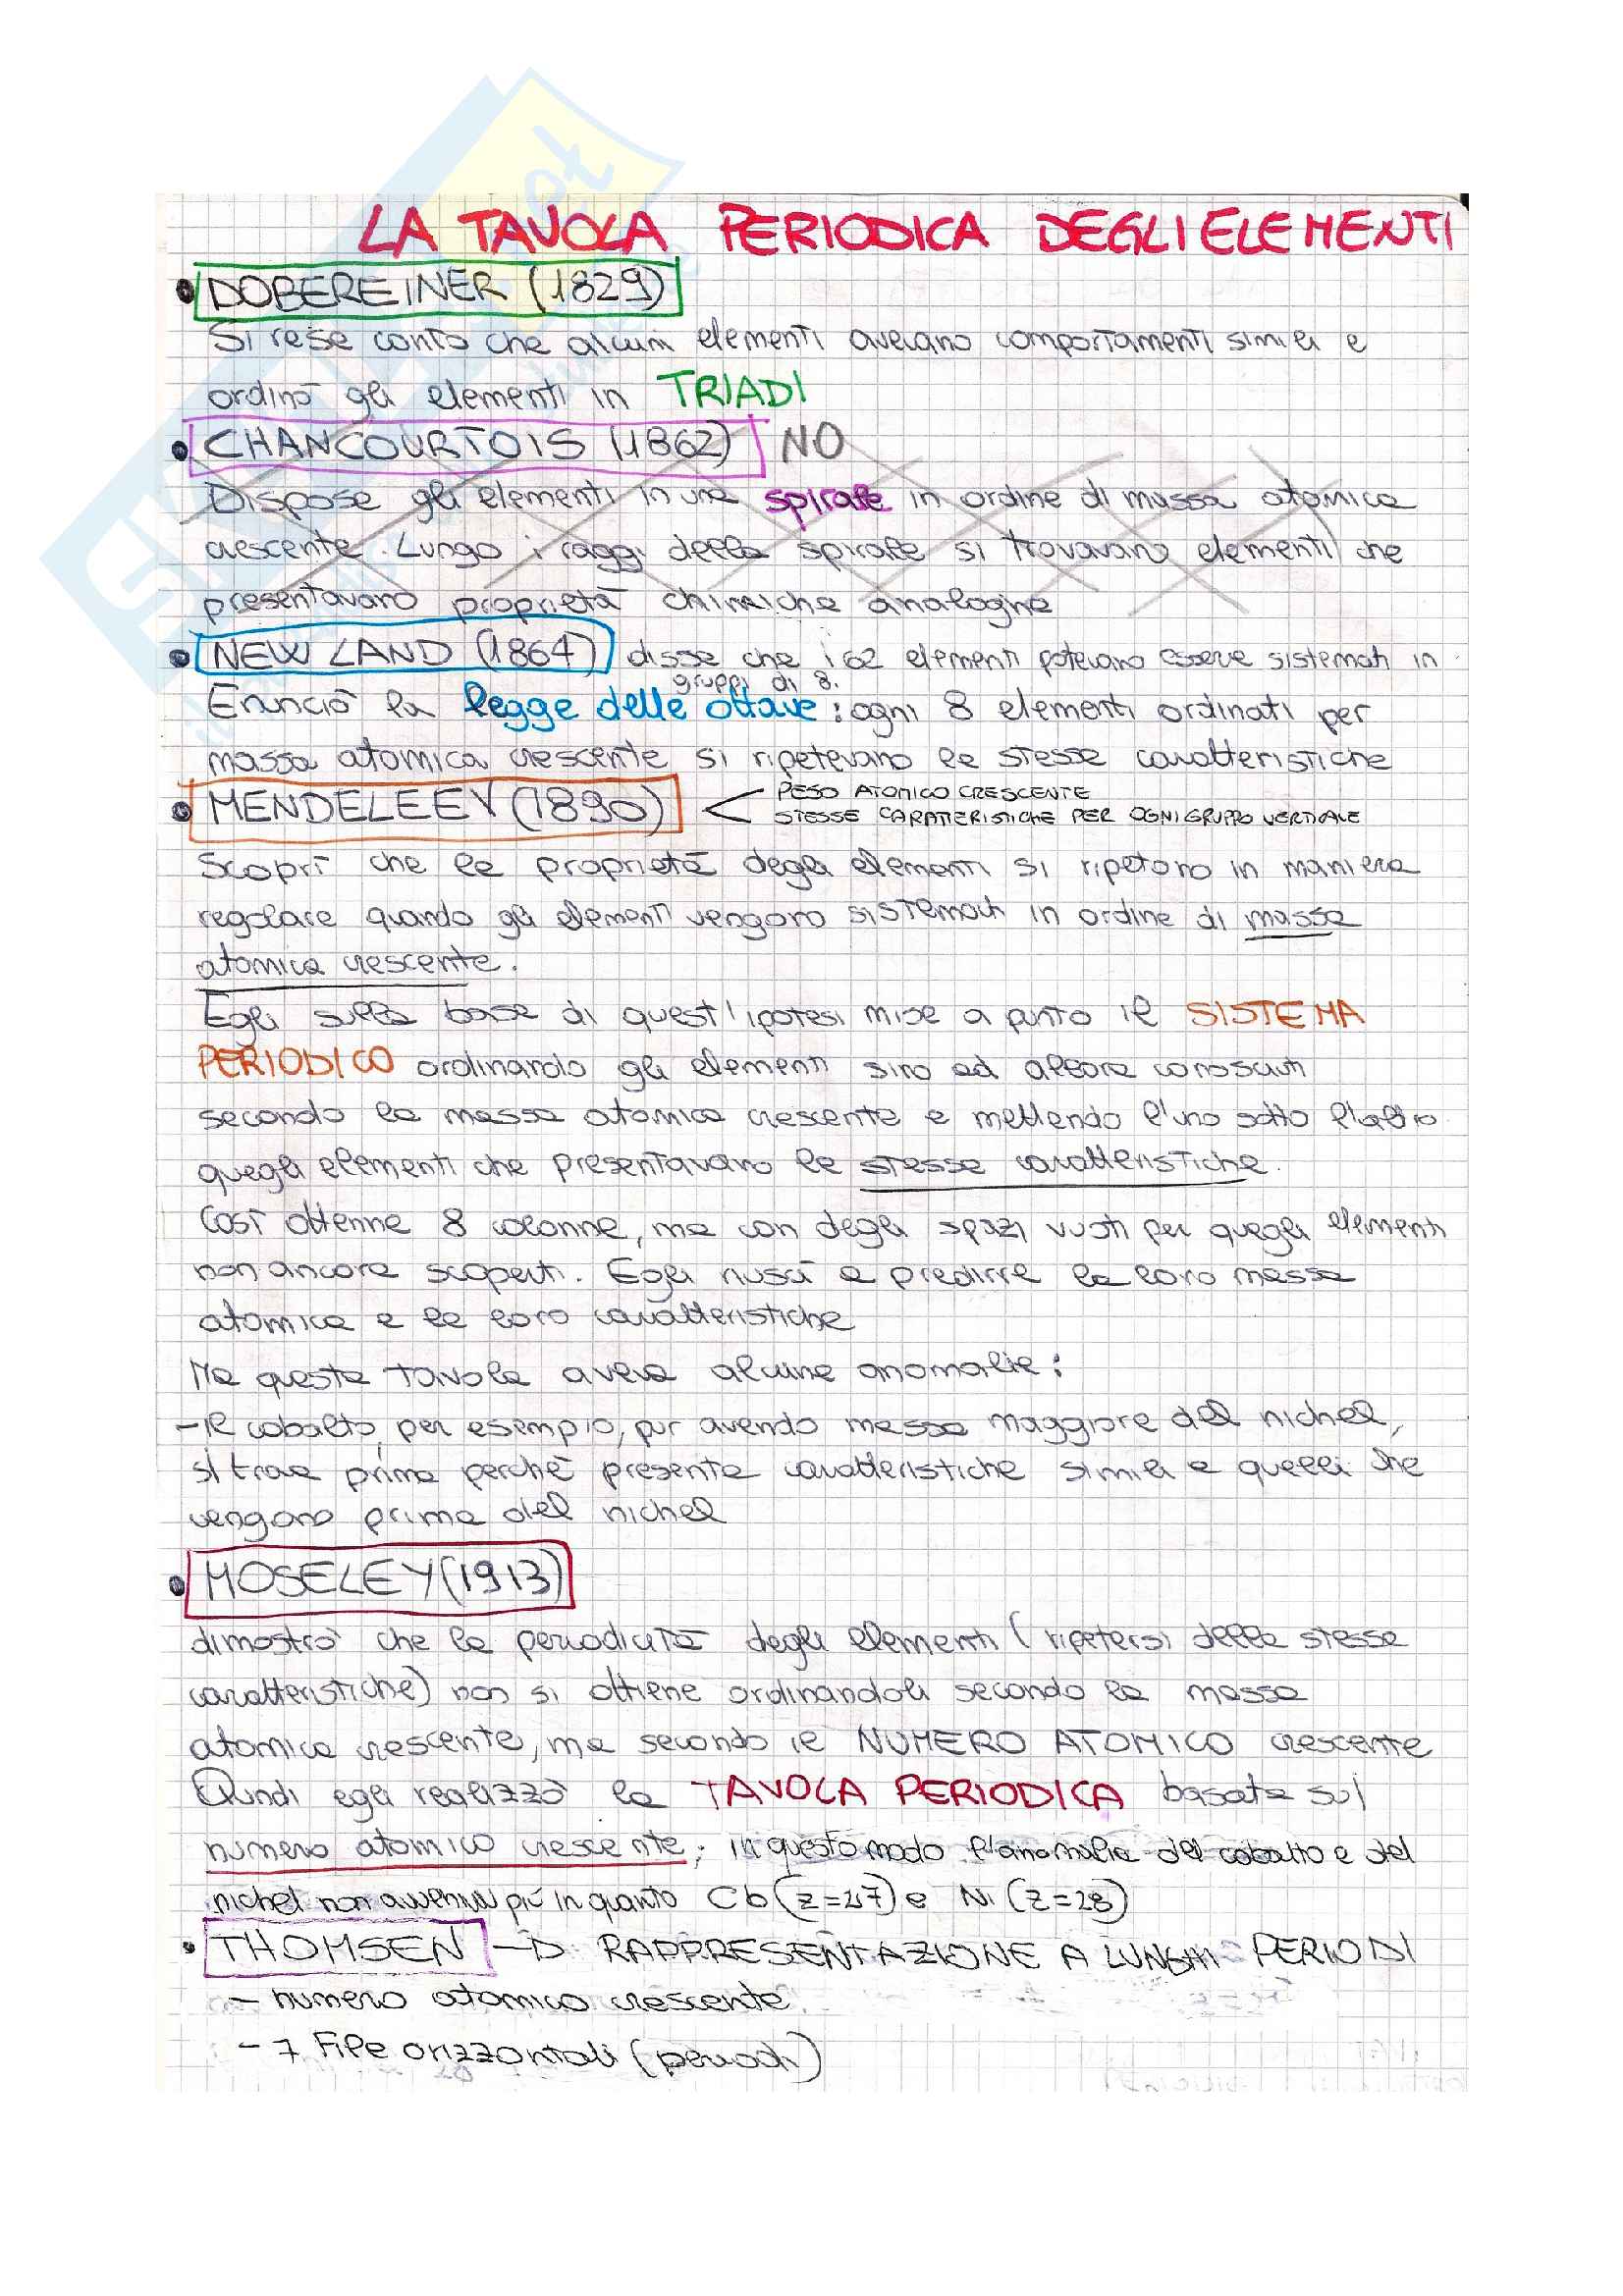 LA TAVOLA PERIODICA DEGLI ELEMENTI
• DOBEREINER (1829)
Si rese conto che alcuni elementi avevano comportamenti simili e
ordinò gli elementi in TRIADI
• CHANCOURTOIS (1862) NO
Dispose gli elementi in una spirale in ordine di massa atomica
crescente. Lungo i raggi della spirale si trovavano elementi che
presentavano proprietà chimiche analoghe
• NEW LAND (1864) disse che i 62 elementi potevano essere sistemati in
gruppi di 8.
Enunciò la legge delle ottave: ogni 8 elementi ordinati per
massa atomica crescente si ripetevano le stesse caratteristiche
• MENDELEEV (1890) < PESO ATOMICO CRESCENTE
STESSE CARATTERISTICHE PER OGNI GRUPPO VERTICALE
Scoprì che le proprietà degli elementi si ripetono in maniera
regolare quando gli elementi vengono sistemati in ordine di massa
atomica crescente.
Egli sulla base di quest'ipotesi mise a punto il SISTEMA
PERIODICO ordinando gli elementi sino ad allora conosciuti
secondo la massa atomica crescente e mettendo l'uno sotto l'altro
quegli elementi che presentavano le stesse caratteristiche.
Così ottenne 8 colonne, ma con degli spazi vuoti per quegli elementi
non ancora scoperti. Egli riuscì a predirre la loro massa
atomica e le loro caratteristiche
Ma questa tavola aveva alcune anomalie:
- Il cobalto, per esempio, pur avendo massa maggiore del nichel,
si trova prima perchè presenta caratteristiche simili a quelli che
vengono prima del nichel
• MOSELEY (1913)
dimostrò che la periodicità degli elementi (ripetersi delle stesse
caratteristiche) non si ottiene ordinandoli secondo la massa
atomica crescente, ma secondo il NUMERO ATOMICO crescente
Quindi egli realizzò la TAVOLA PERIODICA basata sul
numero atomico crescente; in questo modo l'anomalia del cobalto e del
nichel non avveniva più in quanto Cb (z=27) e Ni (z=28)
• THOMSEN → RAPPRESENTAZIONE A LUNGHI PERIODI
- numero atomico crescente
- 7 file orizzontali (periodi)